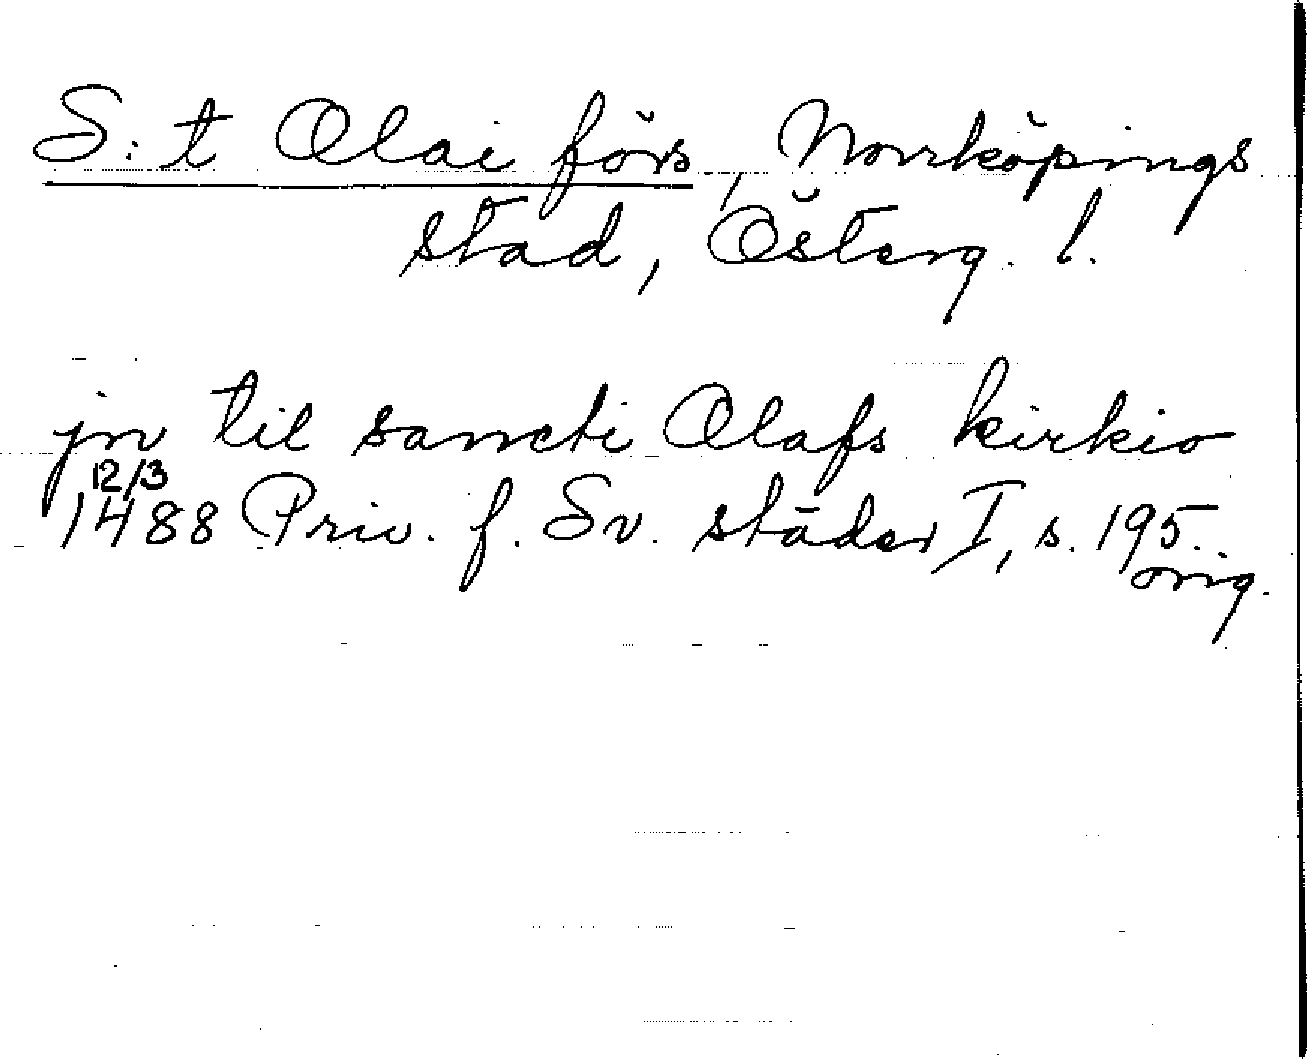 S:t Olai förs, Norrköpings
stad, Österg. l.
jn til sancti Olafs kirkio
12/3
1488 Priv. f. Sv. städer I, s. 195.
orig.